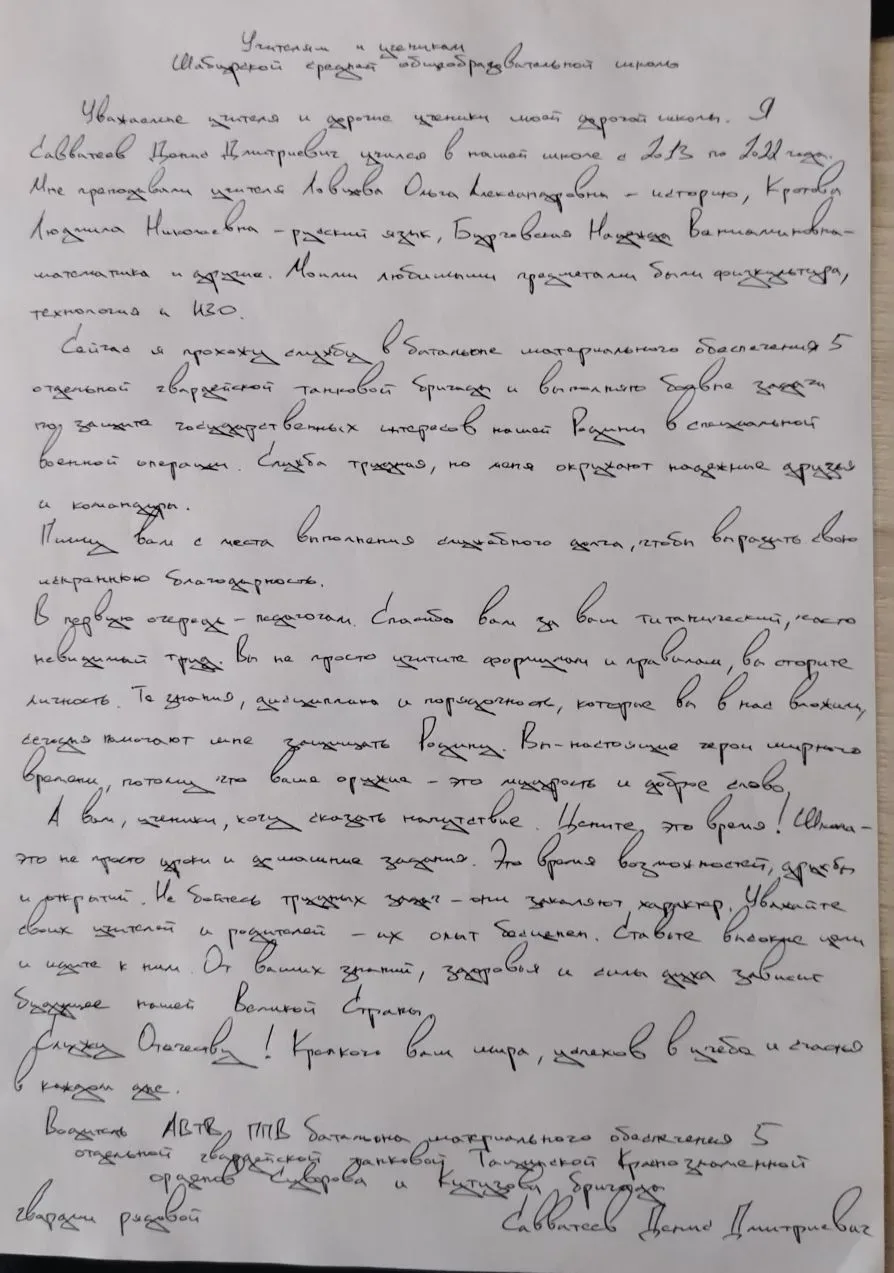 Учителям и ученикам
Шабурской средней общеобразовательной школы
Уважаемые учителя и дорогие ученики моей дорогой школы. Я
Савватеев Денис Дмитриевич учился в нашей школе с 2013 по 2022 года.
Мне преподавали учителя Ловцова Ольга Александровна – историю, Кротова
Людмила Николаевна – русский язык, Надежда Вениаминовна –
математика и другие. Моими любимыми предметами были физкультура,
технология и ИЗО.
Сейчас я прохожу службу в батальоне материального обеспечения 5
отдельной гвардейской танковой бригады и выполняю боевые задачи
по защите государственных интересов нашей Родины в специальной
военной операции. Служба трудная, но меня окружают надежные друзья
и командиры.
Пишу вам с места выполнения служебного долга, чтобы выразить свою
искреннюю благодарность.
В первую очередь – педагогам. Спасибо вам за ваш титанический, часто
невидимый труд. Вы не просто учите формулам и правилам, вы творите
личность. Те знания, дисциплина и порядочность, которые вы в нас вложили,
сегодня помогают мне защищать Родину. Вы – настоящие герои мирного
времени, потому что ваше оружие – это мудрость и доброе слово.
А вам, ученики, хочу сказать напутствие. Цените это время! Школа –
это не просто уроки и домашние задания. Это время возможностей, дружбы
и открытий. Не бойтесь трудных задач – они закаляют характер. Уважайте
своих учителей и родителей – их опыт бесценен. Ставьте высокие цели
и идите к ним. От ваших знаний, здоровья и силы духа зависит
будущее нашей Великой Страны.
Служу Отечеству! Крепкого вам мира, успехов в учёбе и счастья
в каждом дне.
Водитель АВТВ ППВ батальона материального обеспечения 5
отдельной гвардейской танковой Тацинской Краснознаменной
орденов Суворова и Кутузова бригады
гвардии рядовой Савватеев Денис Дмитриевич